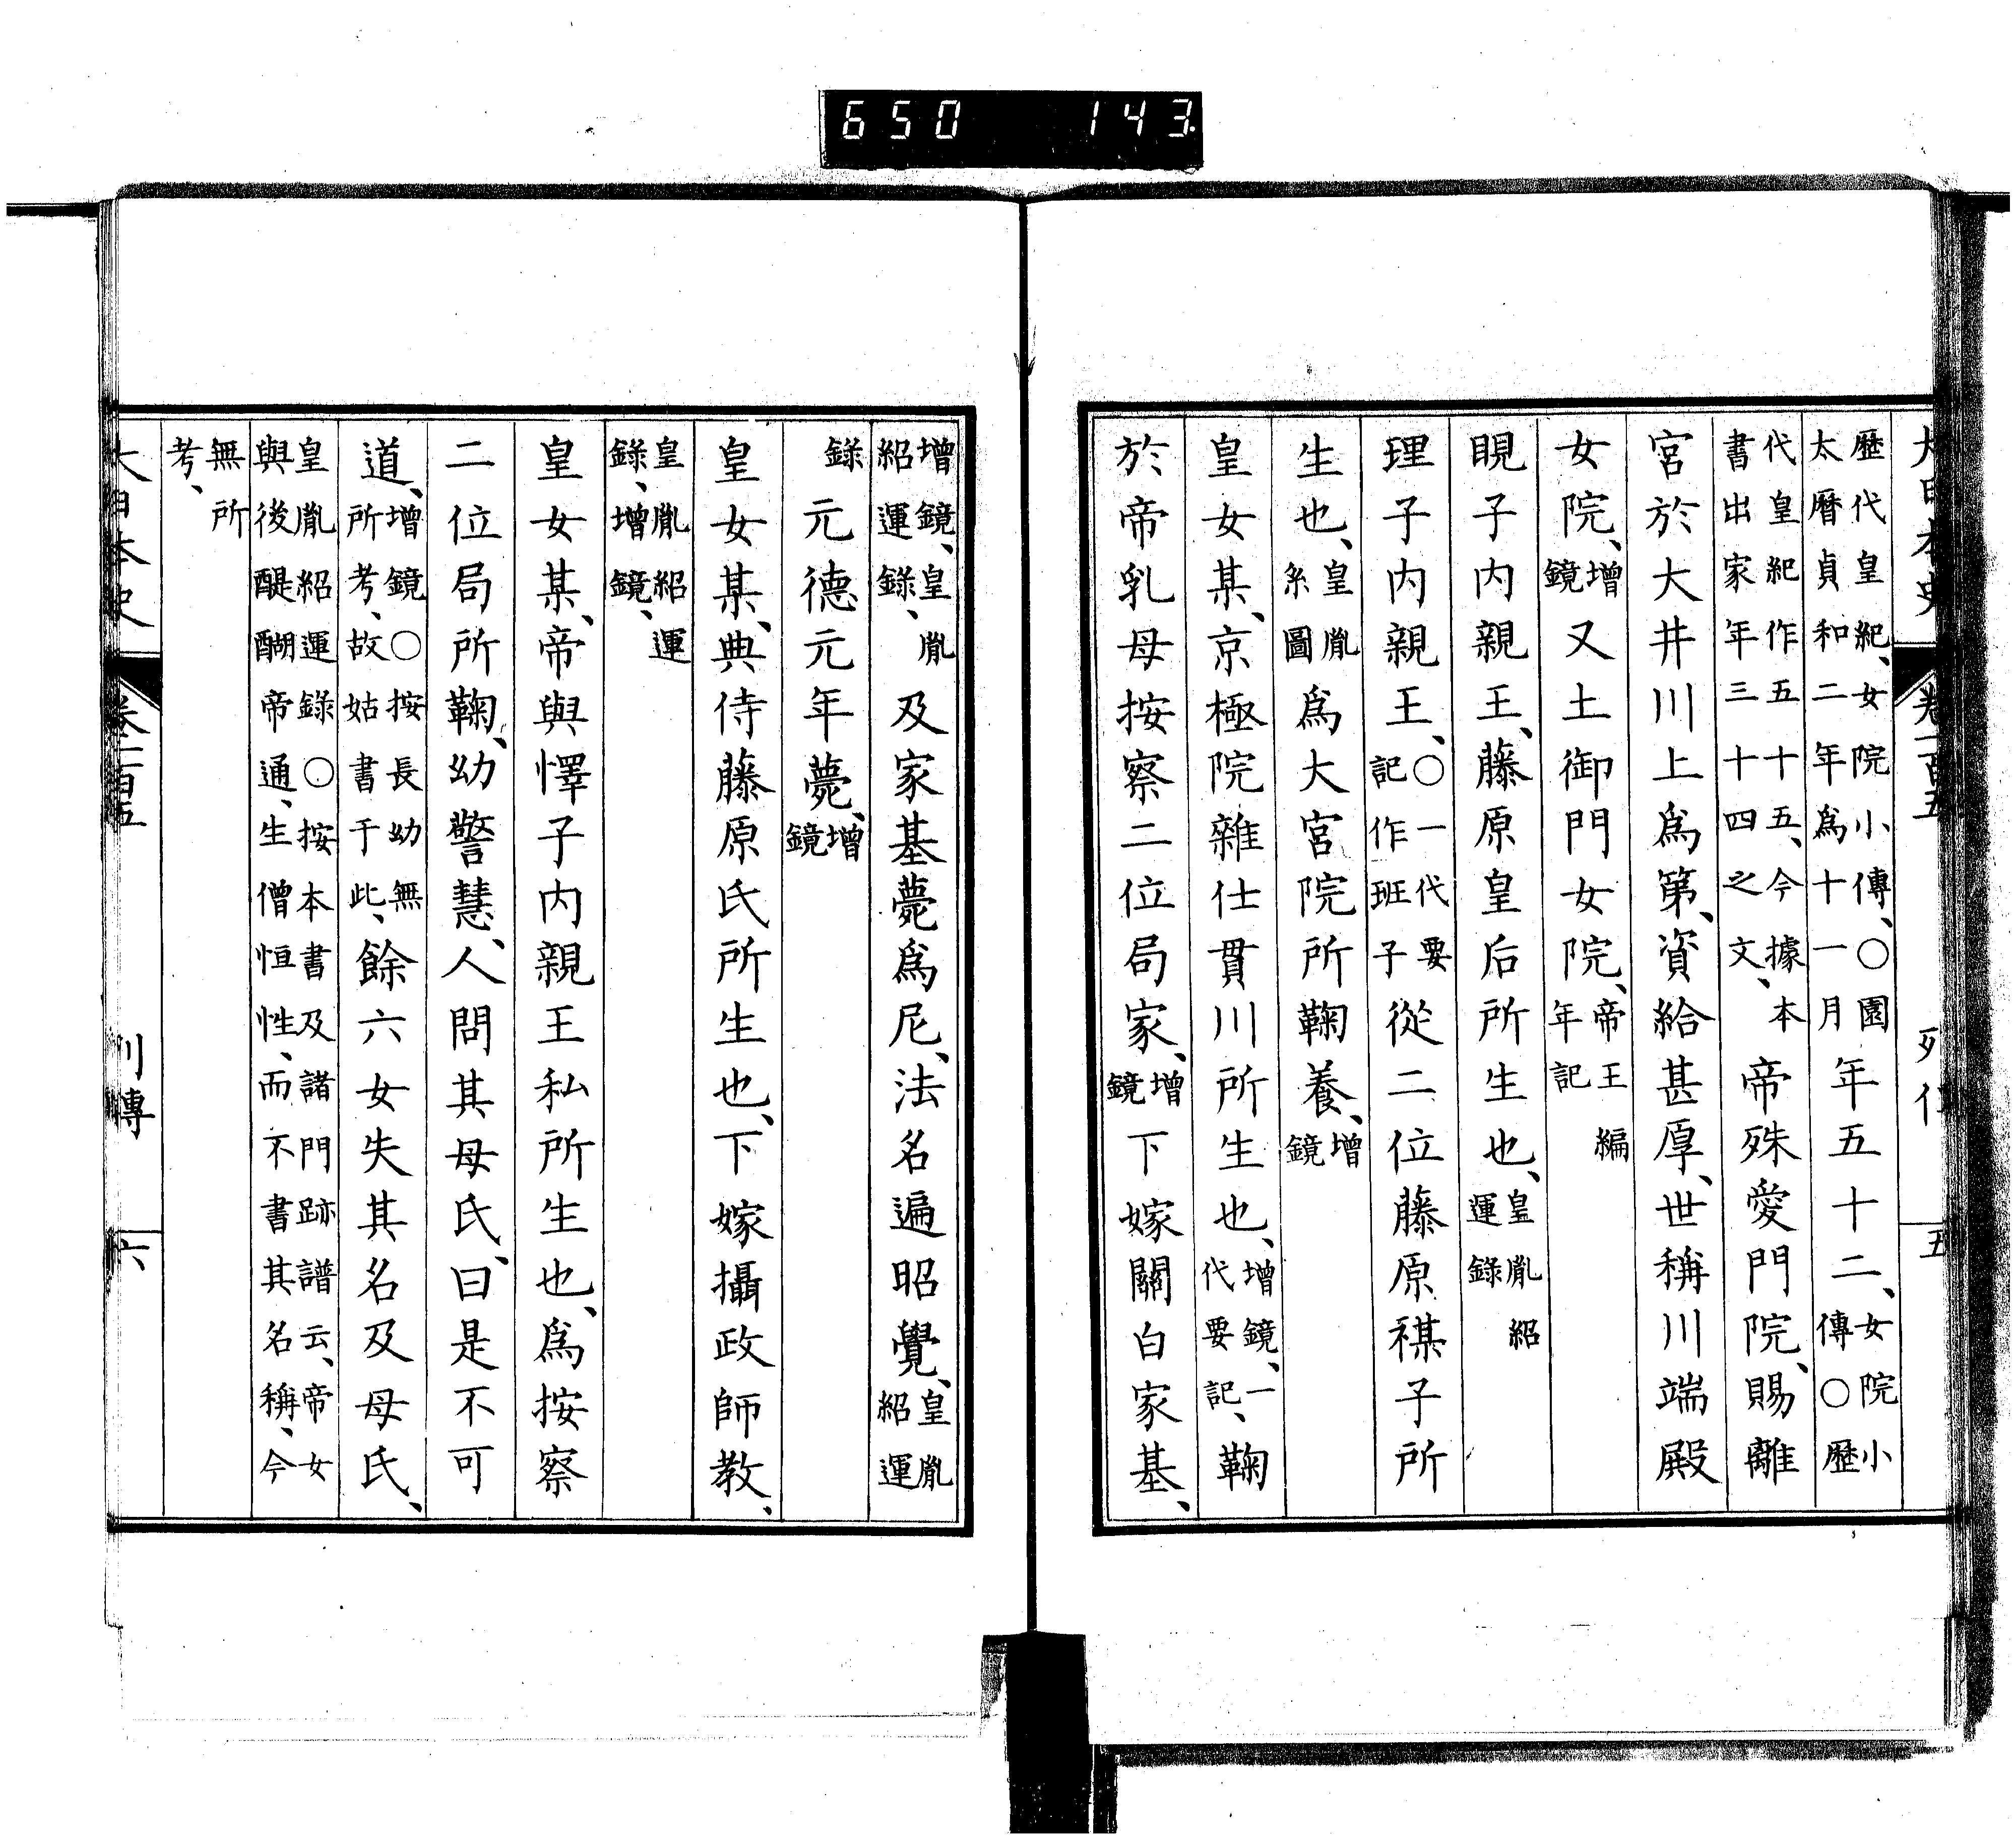 650 143
歷代皇紀、女院小傳、〇園太曆貞和二年爲十一月年五十二、女院小傳〇歷
代皇紀作五十五、今據本書出家年三十四之文、帝殊愛門院、賜離
宮於大井川上爲第、資給甚厚、世稱川端殿
女院、增鏡又土御門女院、帝王編年記
晛子内親王、藤原皇后所生也、皇胤紹運錄
理子内親王、〇一代要記作班子從二位藤原禖子所
生也、皇胤系圖爲大宮院所鞠養、增鏡
皇女某、京極院雜仕貫川所生也、增鏡、一代要記、鞠
於帝乳母按察二位局家、增鏡下嫁關白家基、
增鏡、皇胤紹運錄、及家基薨爲尼、法名遍昭覺、皇胤紹運
錄元德元年薨、增鏡
皇女某、典侍藤原氏所生也、下嫁攝政師教、
皇胤紹運錄、增鏡、
皇女某、帝與懌子内親王私所生也、爲按察
二位局所鞠、幼警慧、人問其母氏、曰是不可
道、增鏡〇按長幼無所考、故姑書于此、餘六女失其名及母氏、
皇胤紹運錄〇按本書及諸門跡譜云、帝女與後醍醐帝通、生僧恒性、而不書其名稱、今
無所考、
大日本史 卷一百五 列傳 六